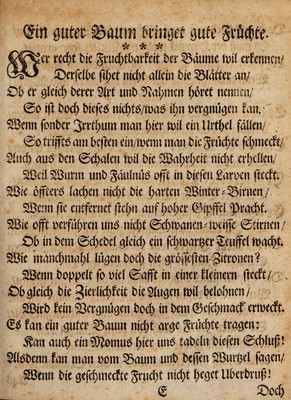 Ein guter Baum bringet gute Früchte.
* * *
Wer recht die Fruchtbarkeit der Bäume wil erkennen/
Derselbe sihet nicht allein die Blätter an/
Ob er gleich derer Art und Nahmen höret nennen/
So ist doch dieses nichts/was ihn vergnügen kan.
Wenn sonder Irrthum man hier wil ein Urthel fällen/
So triffts am besten ein/wenn man die Früchte schmeckt/
Auch aus den Schalen wil die Wahrheit nicht erhellen/
Weil Wurm und Fäulnüs offt in diesen Larven steckt.
Wie öffters lachen nicht die harten Winter-Birnen/
Wenn sie entfernet stehn auf hoher Gipffel Pracht.
Wie offt verführen uns nicht Schwanen-weisse Stirnen/
Ob in dem Schedel gleich ein schwartzer Teuffel wacht.
Wie manchmahl lügen doch die grössesten Zitronen?
Wenn doppelt so viel Safft in einer kleinern steckt/
Ob gleich die Zierlichkeit die Augen wil belohnen/
Wird kein Vergnügen doch in dem Geschmack erweckt.
Es kan ein guter Baum nicht arge Früchte tragen:
Kan auch ein Momus hier uns tadeln diesen Schluß!
Alsdenn kan man vom Baum und dessen Wurtzel sagen/
Wenn die geschmeckte Frucht nicht heget Uberdruß!
E Doch